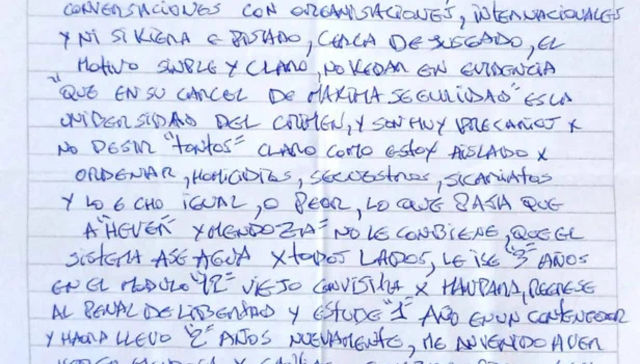 CONVERSACIONES CON ORGANISACIONES, INTERNACIONALES
Y NI SIKIERA E PISADO, CERCA DE JUSGADO, EL
MOTIVO SIMPLE Y CLARO, NO KEDAR EN EVIDENCIA
"QUE EN SU CARCEL DE MAXIMA SEGURIDAD" ES LA
UNIBERSIDAD DEL CRIMEN, Y SON MUY PRECARIOS X
NO DESIR "TONTOS" CLARO COMO ESTOY AISLADO X
ORDENAR, HOMICIDIOS, SECUESTROS, SICARIATOS
Y LO E CHO IGUAL, O PEOR, LO QUE PASA QUE
A "HEVER" Y MENDOZA" NO LE CONBIENE, QUE EL
SISTEMA ASE AGUA X TODOS LADOS, LE ISE "3" AÑOS
EN EL MODULO "12" VIEJO CON VISITA X MAMPARA, REGRESE
AL PENAL DE LIBERTAD Y ESTUDE "1" AÑO EN UN CONTENEDOR
Y HAORA LLEVO "2" AÑOS NUEVAMENTE, ME AN VENIDO A VER